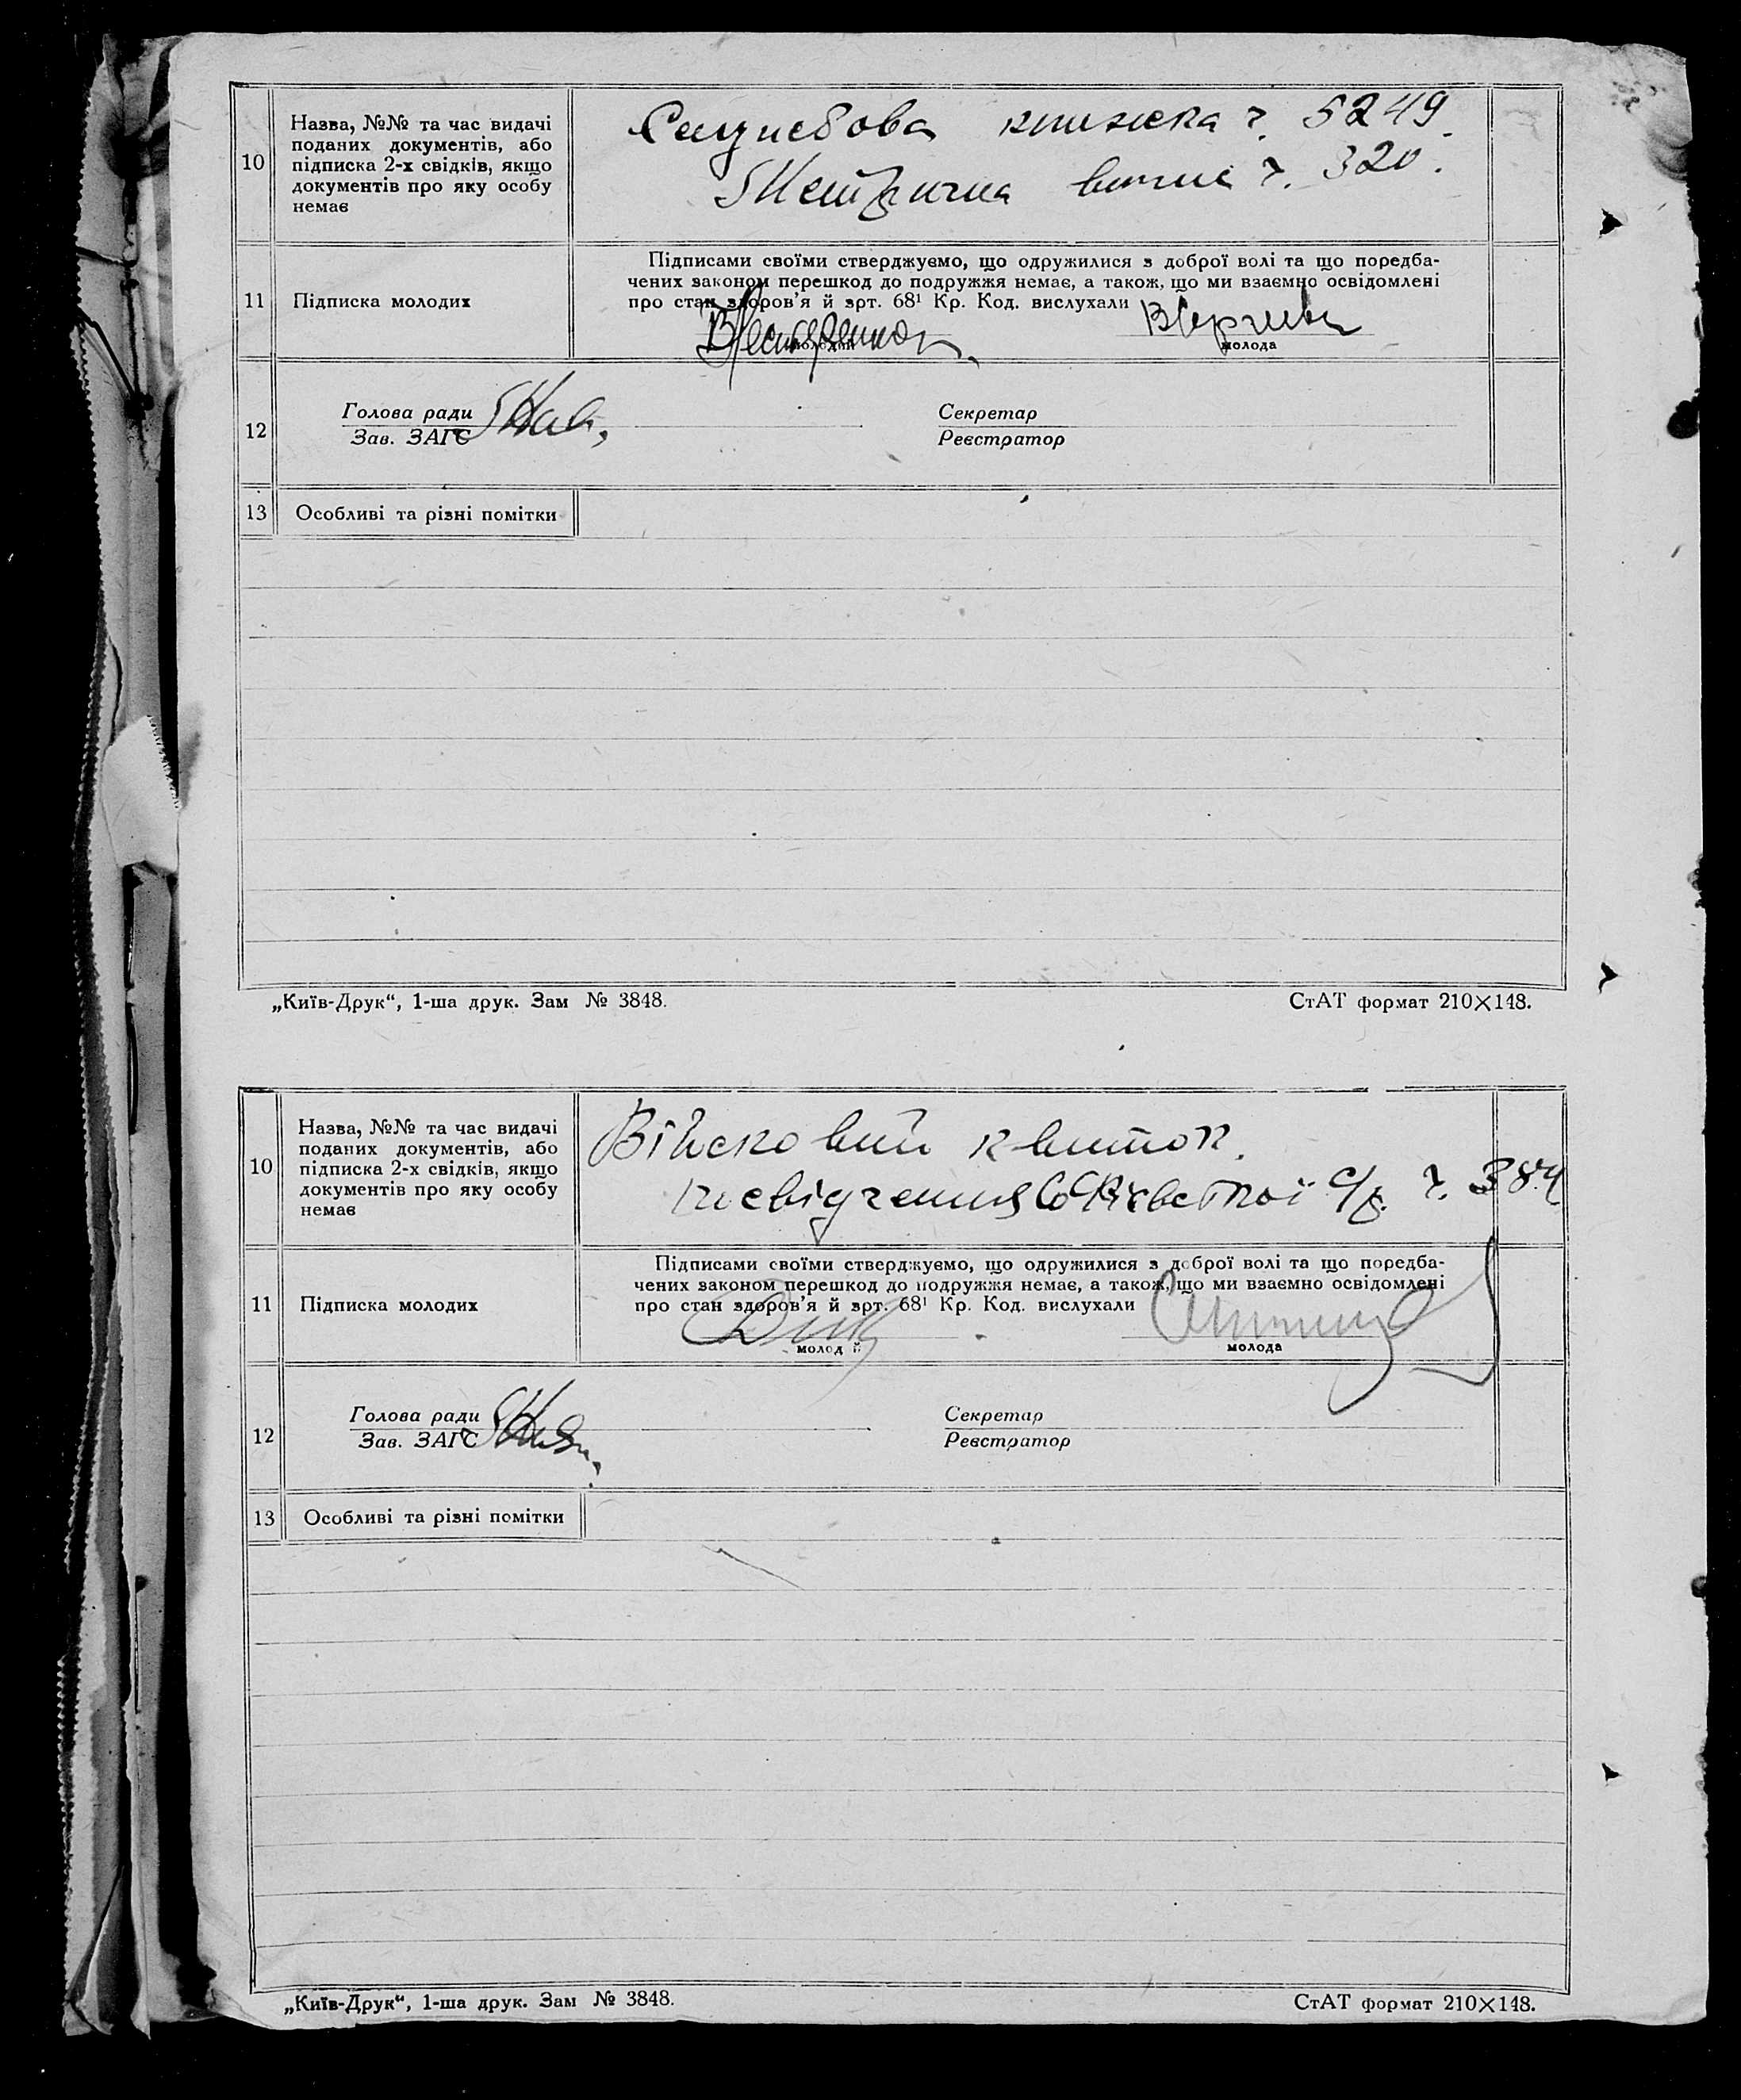 10
Назва, №№ та час видачі
поданих документів, або
підписка 2-х свідків, якщо
документів про яку особу
немає
Службова книжка ч. 5249.
Метрична випис ч. 320.
11
Підписка молодих
Підписами своїми стверджуємо, що одружилися з доброї волі та що поредба-
чених законом перешкод до подружжя немає, а також, що ми взаємно освідомлені
про стан здоров’я й врт. 68¹ Кр. Код. вислухали
молодий
молода
12
Голова ради
Зав. ЗАГС
Секретар
Реєстратор
13
Особливі та різні помітки
„Київ-Друк“, 1-ша друк. Зам № 3848.
СтАТ формат 210×148.
10
Назва, №№ та час видачі
поданих документів, або
підписка 2-х свідків, якщо
документів про яку особу
немає
Військовий квиток.
посвідчення с/р. ч. 384
11
Підписка молодих
Підписами своїми стверджуємо, що одружилися з доброї волі та що поредба-
чених законом перешкод до подружжя немає, а також, що ми взаємно освідомлені
про стан здоров’я й врт. 68¹ Кр. Код. вислухали
молод й
молода
12
Голова ради
Зав. ЗАГС
Секретар
Реєстратор
13
Особливі та різні помітки
„Київ-Друк“, 1-ша друк. Зам № 3848.
СтАТ формат 210×148.